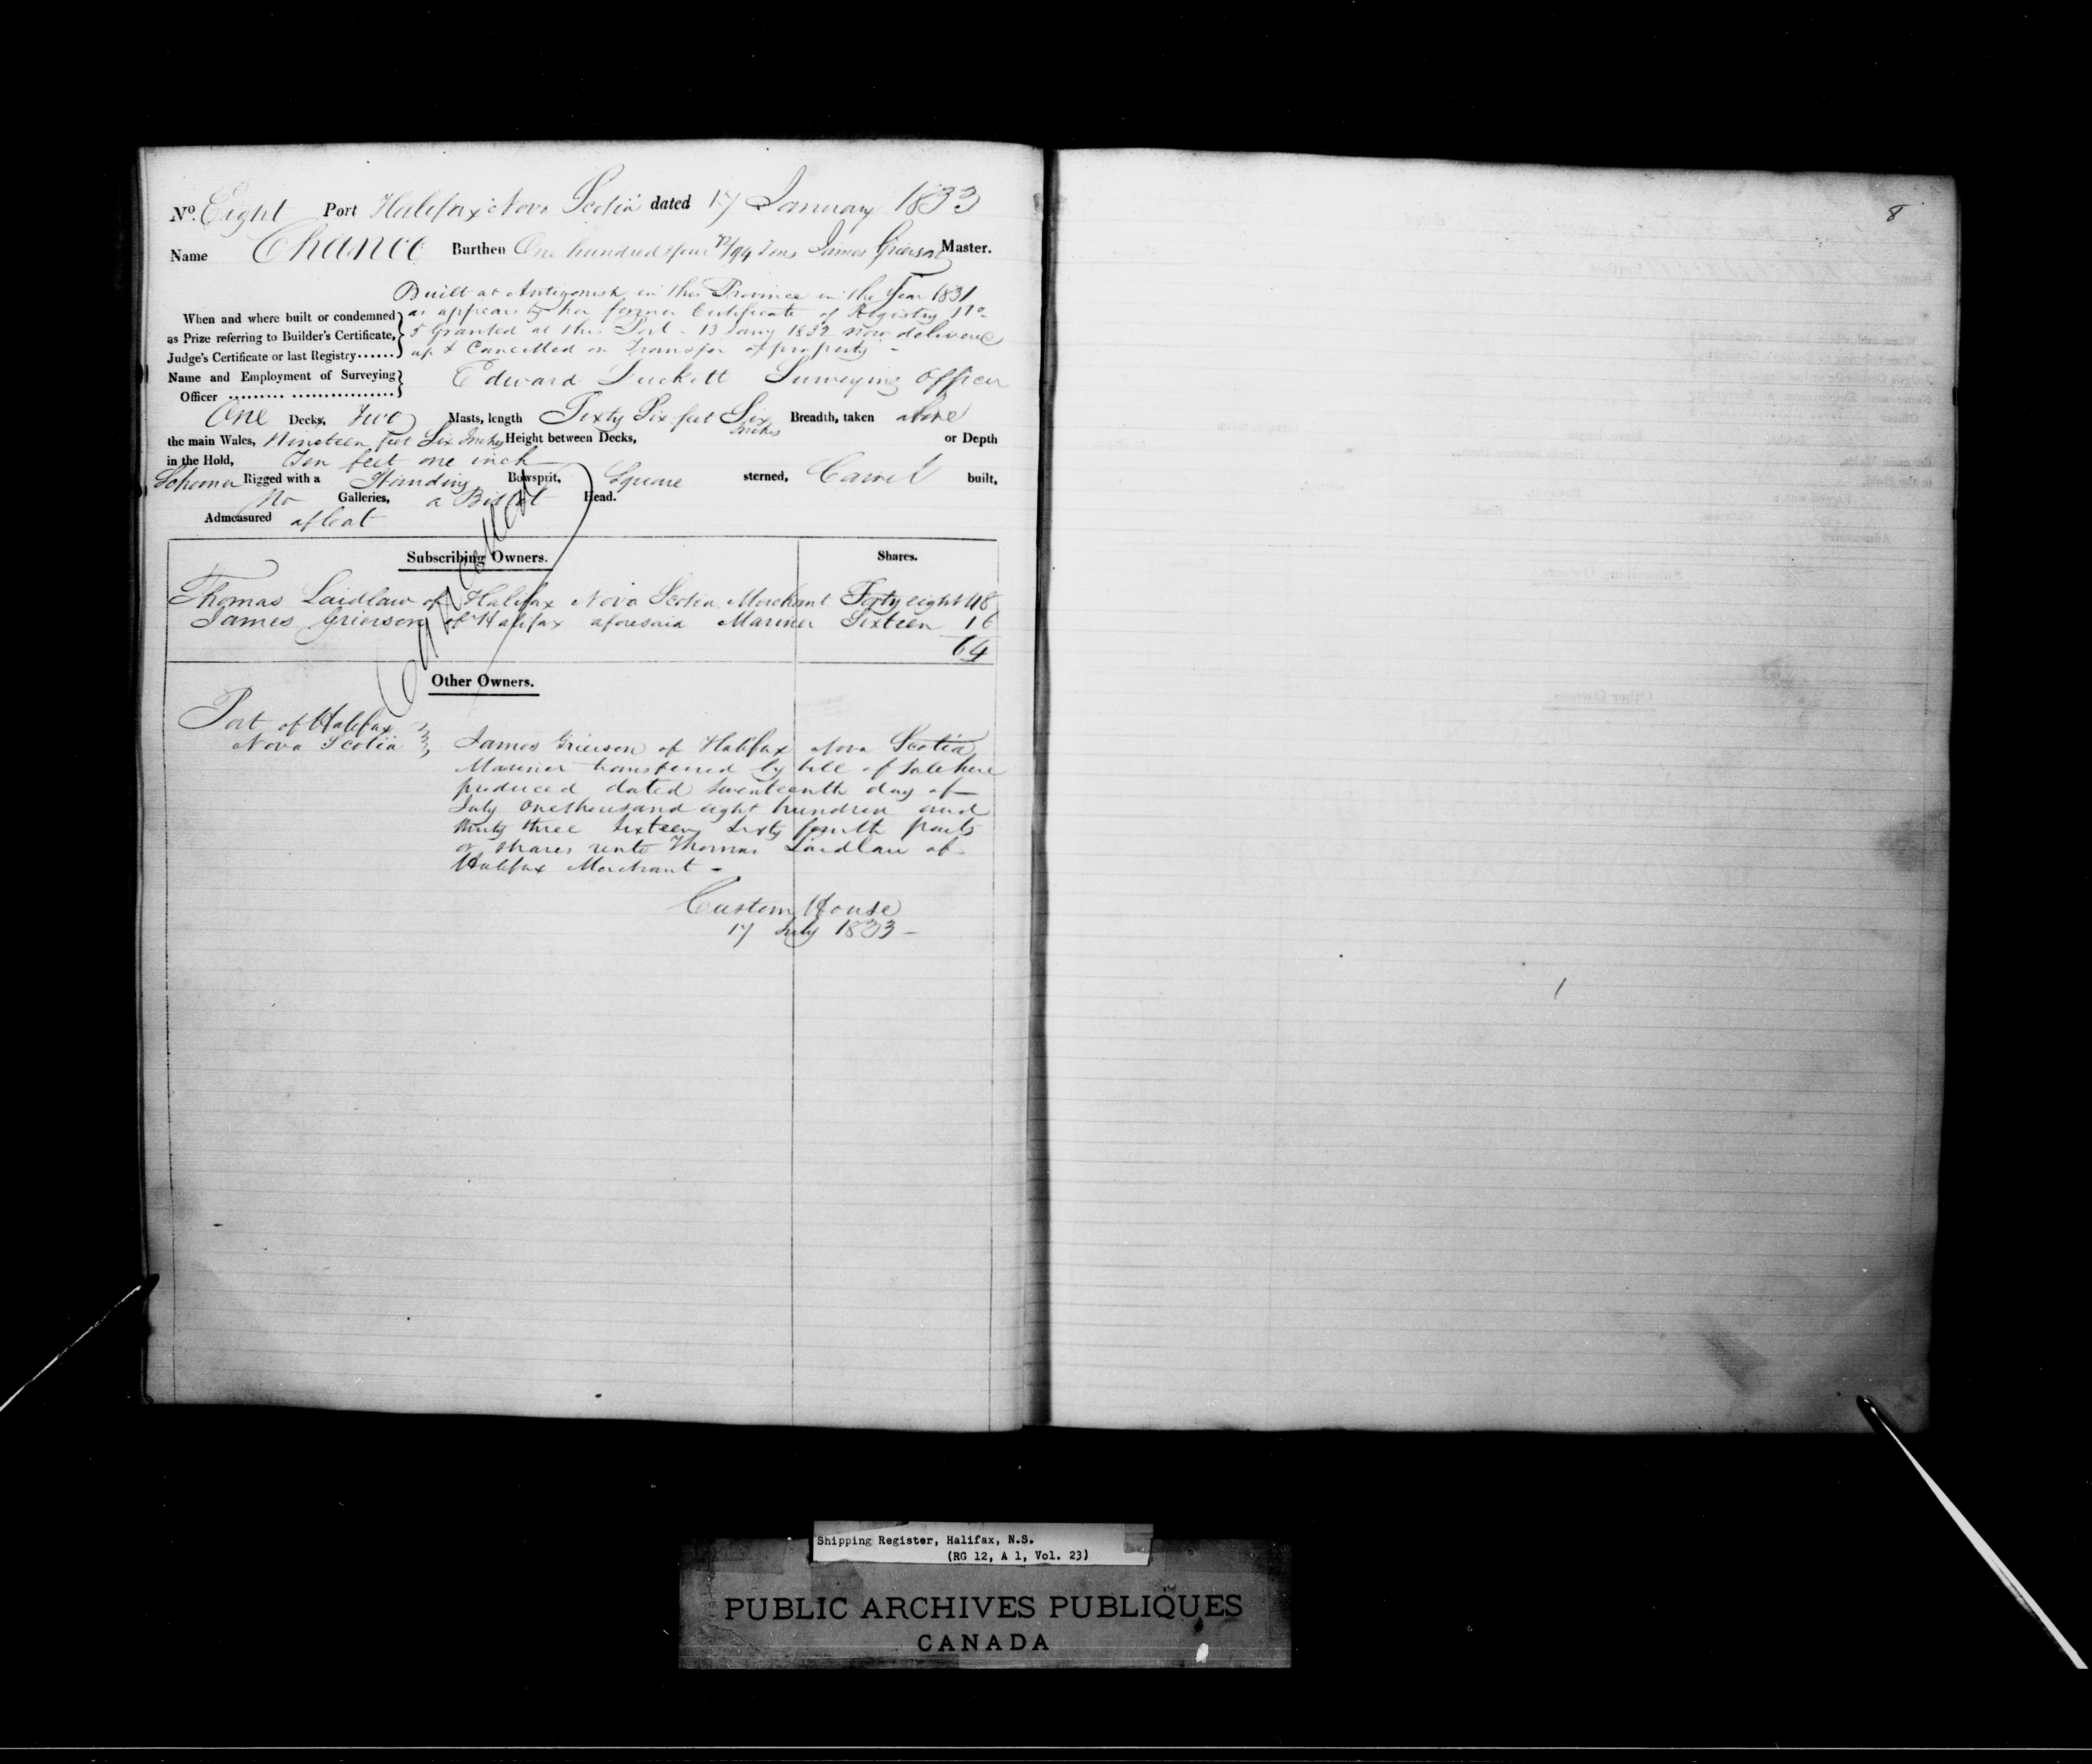 No. Eight Port Halifax Nova Scotia dated 17 January 1833
Name Chance Burthen One hundred & four 72/94 Tons James Grierson Master.
Built at Antigonish in this Province in the Year 1831
When and where built or condemned as appears by her former Certificate of Registry No.
as Prize referring to Builder's Certificate, 5 Granted at this Port 13 Jany 1832 now delivered
Judge's Certificate or last Registry...... up & Cancelled on Transfer of property -
Name and Employment of Surveying Edward Duckett Surveying Officer
Officer ......... .................
One Decks, Two Masts, length Sixty Six feet Six Inches Breadth, taken above
the main Wales, Nineteen feet Six Inches Height between Decks, or Depth
in the Hold, Ten feet one inch
Schooner Rigged with a Standing Bowsprit, Square sterned, Carvel built,
No Galleries, a Billet Head.
Admeasured afloat
Cancelled
Subscribing Owners. Shares.
Thomas Laidlaw of Halifax Nova Scotia Merchant Forty eight 48
James Grierson of Halifax aforesaid Mariner Sixteen 16
64
Other Owners.
Port of Halifax
Nova Scotia James Grierson of Halifax Nova Scotia
Mariner transferred by bill of Sale here
produced dated Seventeenth day of
July One thousand eight hundred and
thirty three Sixteen Sixty fourth parts
or shares unto Thomas Laidlaw of
Halifax Merchant -
Custom House
17 July 1833 -
8
Shipping Register, Halifax, N.S.
(RG 12, A 1, Vol. 23)
PUBLIC ARCHIVES PUBLIQUES
CANADA